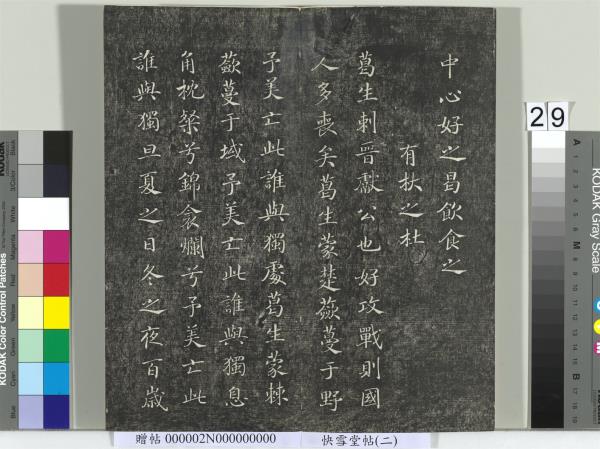 中心好之曷飲食之
有杕之杜
葛生刺晉獻公也好攻戰則國
人多喪矣葛生蒙楚蘞蔓于野
予美亡此誰與獨處葛生蒙棘
蘞蔓于域予美亡此誰與獨息
角枕粲兮錦衾爛兮予美亡此
誰與獨旦夏之日冬之夜百歲
29
KODAK Color Control Patches
Blue
Cyan
Green
Yellow
Red
Magenta
White
3/Color
Black
KODAK Gray Scale
A 1 2 3 4 5 6 M 8 9 10 11 12 13 14 15 B 17 18 19
贈帖 000002N000000000 快雪堂帖(二)